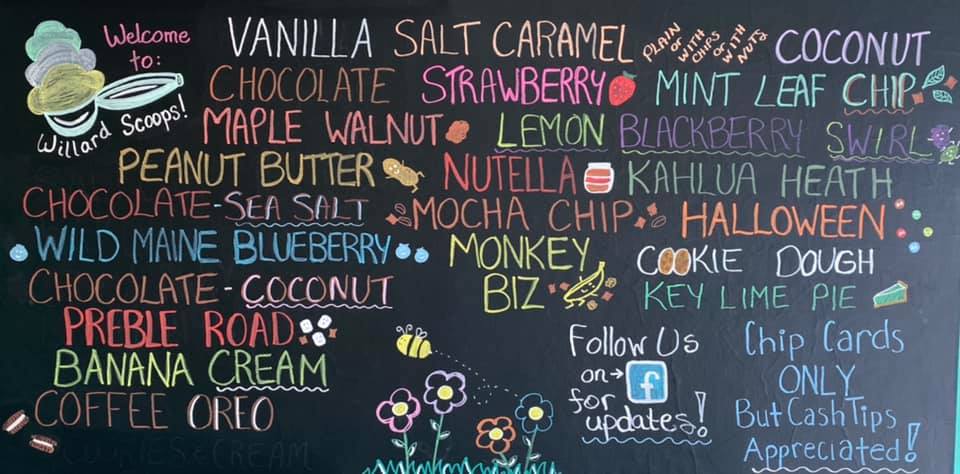 Welcome
to:
Willard Scoops!
VANILLA SALT CARAMEL PLAIN or WITH CHIPS or WITH NUTS COCONUT
CHOCOLATE STRAWBERRY MINT LEAF CHIP
MAPLE WALNUT LEMON BLACKBERRY SWIRL
PEANUT BUTTER NUTELLA KAHLUA HEATH
CHOCOLATE-SEA SALT MOCHA CHIP HALLOWEEN
WILD MAINE BLUEBERRY MONKEY BIZ COOKIE DOUGH
CHOCOLATE-COCONUT KEY LIME PIE
PREBLE ROAD
BANANA CREAM
COFFEE OREO
CREAM
Follow Us
on→ f
for
updates!
Chip Cards
ONLY
But Cash Tips
Appreciated!